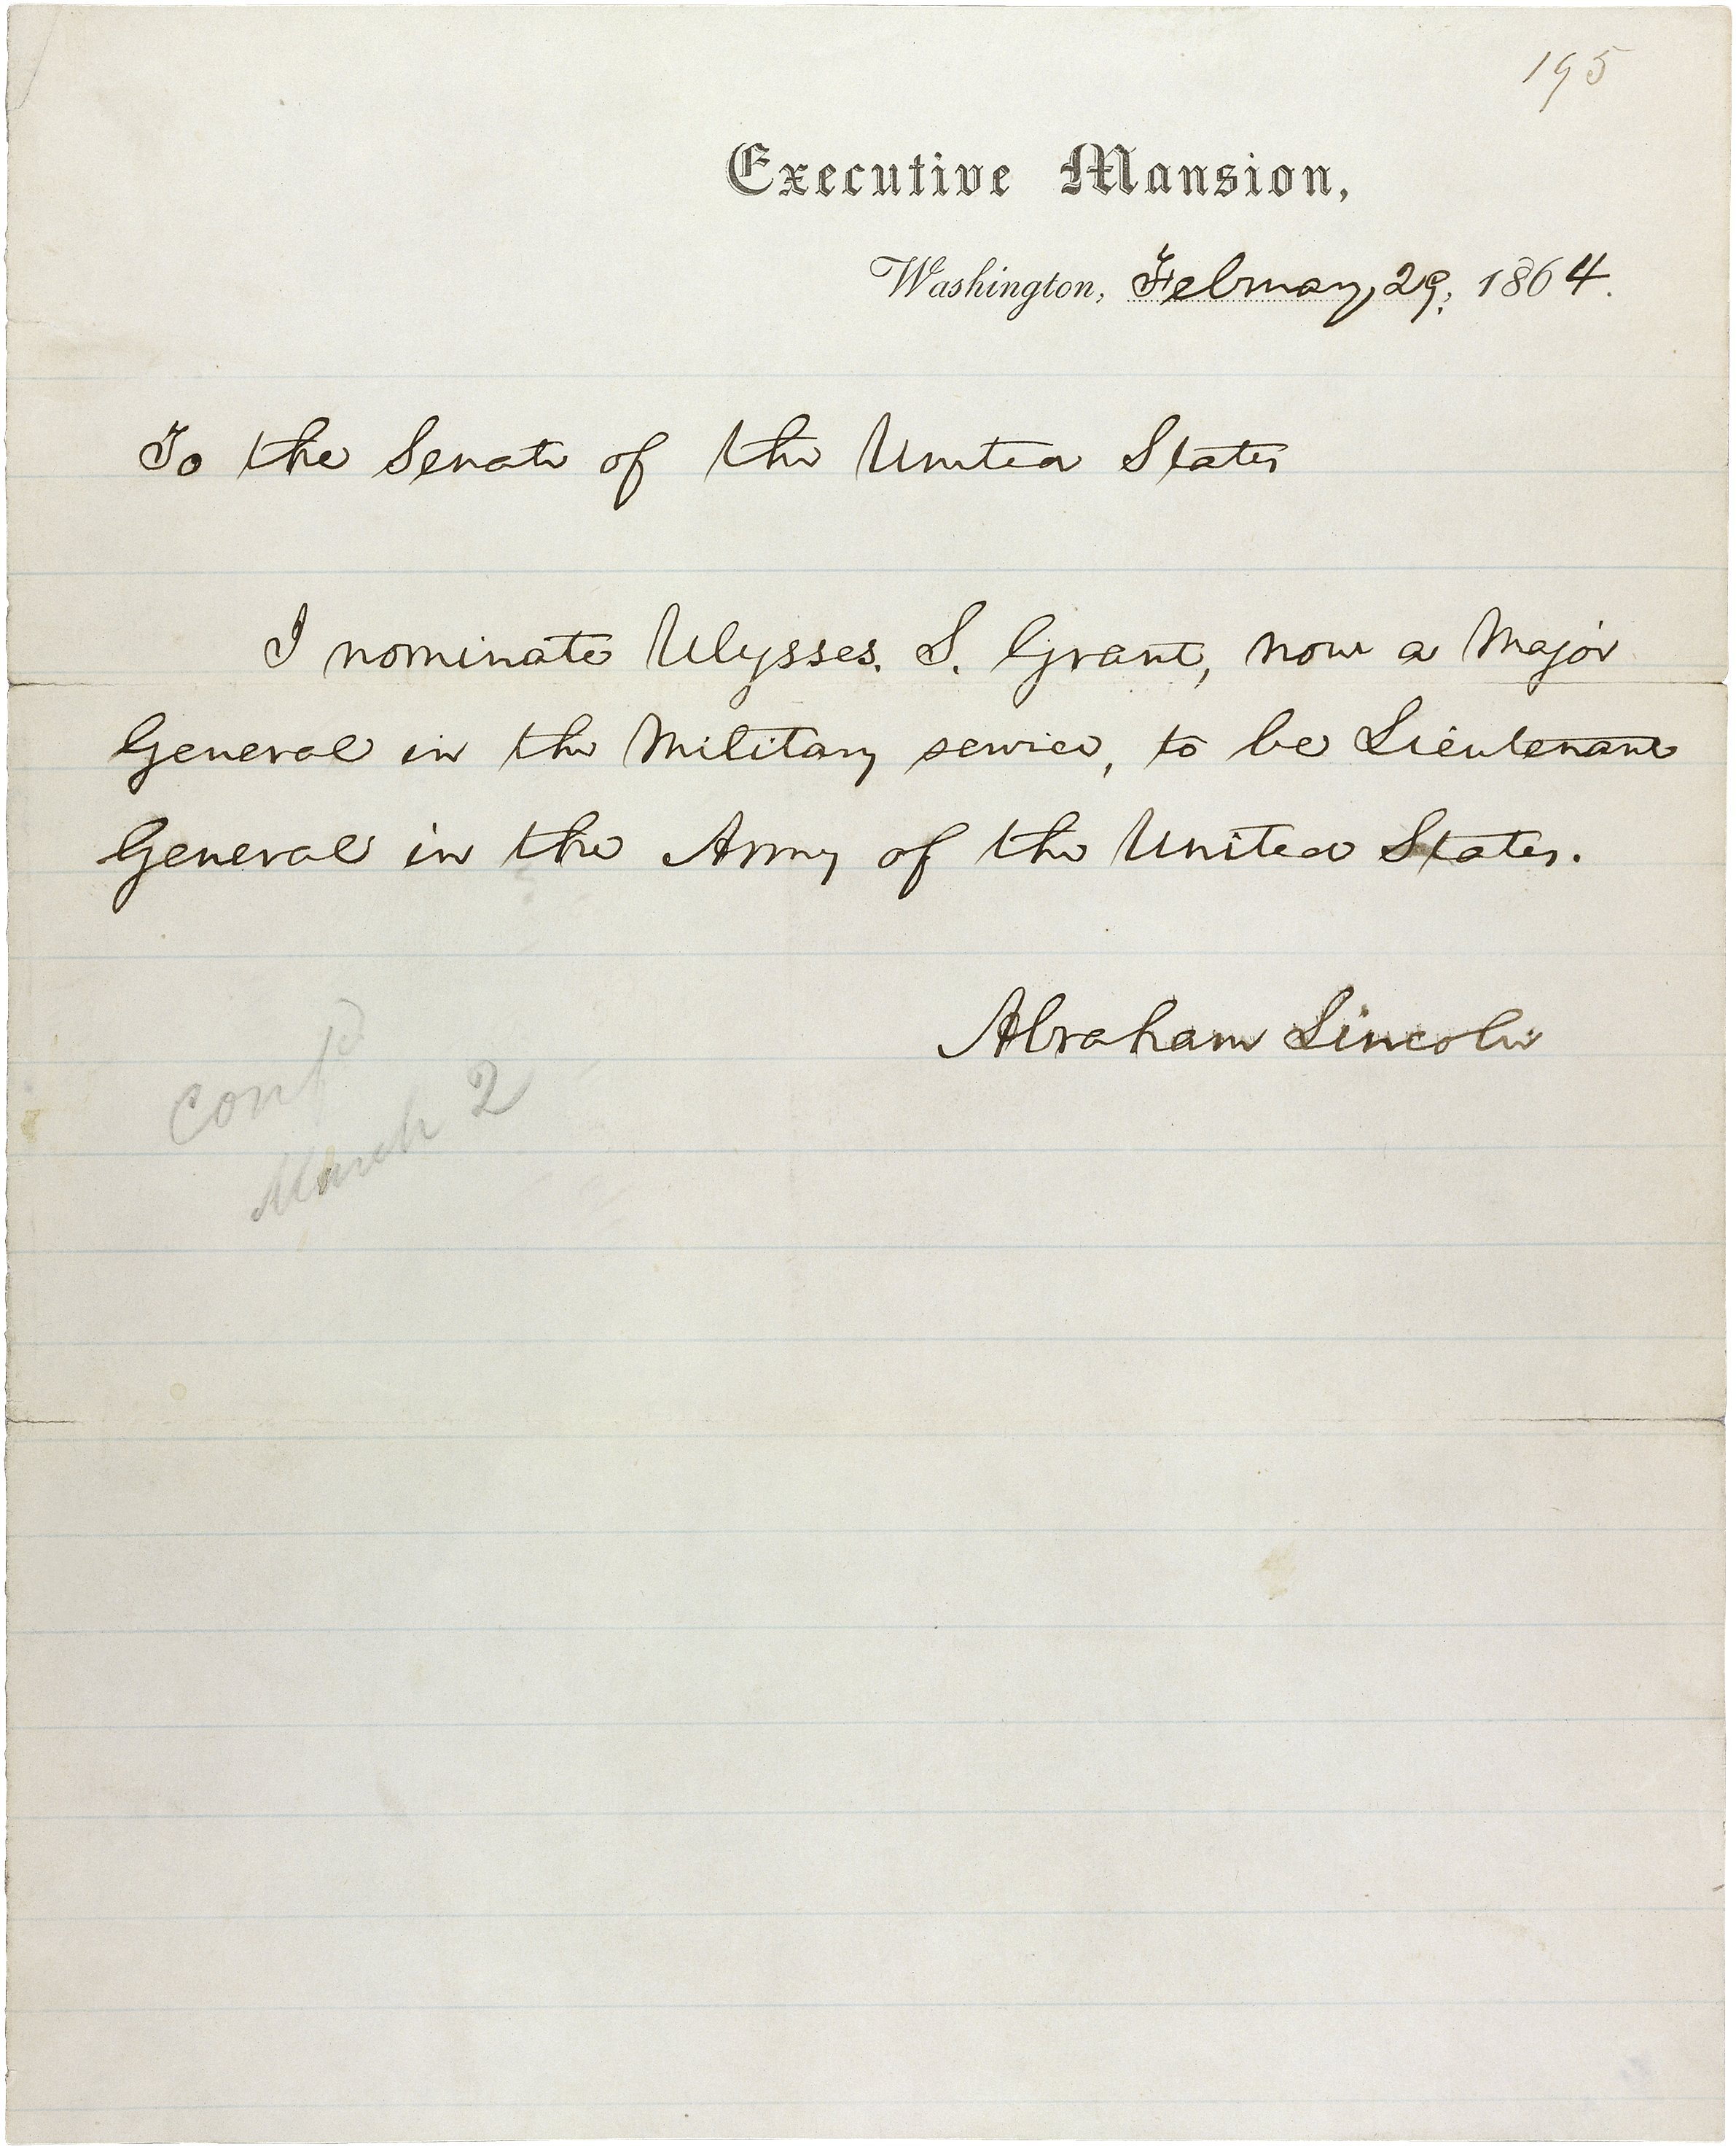 195
Executive Mansion,
Washington, February, 29, 1864.
To the Senate of the United States
I nominate Ulysses. S. Grant, now a Major
General in the Military service, to be Lieutenant
General in the Army of the United States.
Abraham Lincoln
Confd
March 2